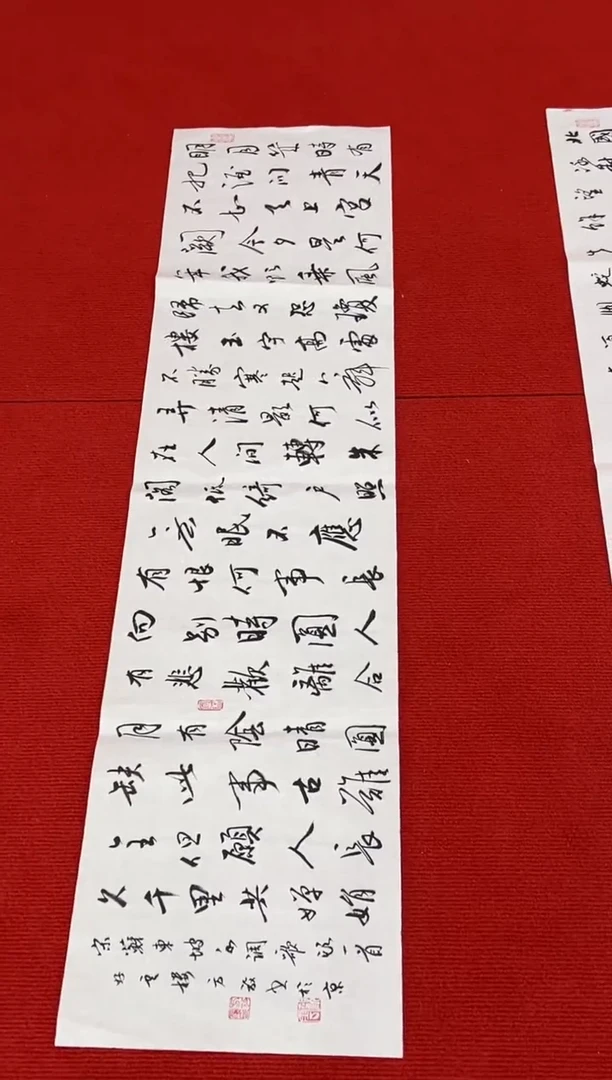 明月幾時有
把酒问青天
不知天上宫
阙今夕是何
年我欲乘風
歸去又恐瓊
樓玉宇高處
不勝寒起舞
弄清影何似
在人间轉朱
阁低绮户照
无眠不應
有恨何事長
向别時圓人
有悲歡離合
月有陰晴圓
缺此事古難
全但願人長
久千里共嬋娟
宋蘇東坡水调歌頭一首
於京
北國